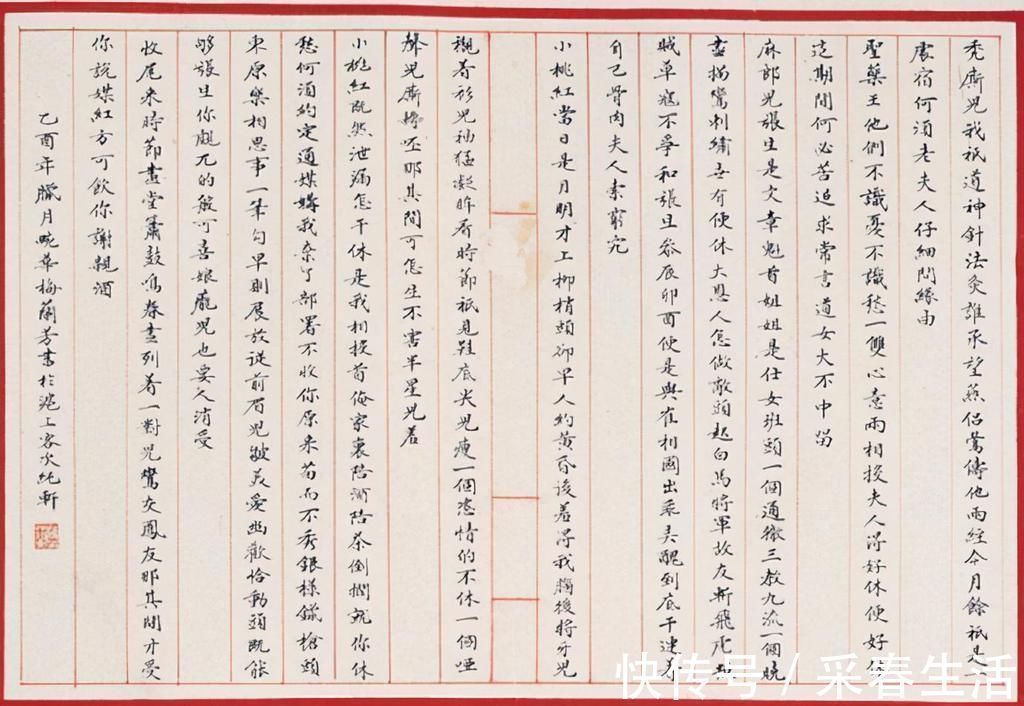 禿廝兒我祇道神針法灸誰承望燕侶鶯儔他兩經今月餘祇是一
處宿何須老夫人仔細問緣由
聖藥王他們不識憂不識愁一雙心意兩相投夫人得好休便好休
這期間何必苦追求常言道女大不中留
麻郎兒張生是文章魁首姐姐是仕女班頭一個通徹三教九流一個曉
盡描鸞刺繡世有便休大恩人怎做敵頭起白馬將軍故友斬飛虎
賊草寇不爭和張生參辰卯酉便是與崔相國出乖弄醜到底干連着
自己骨肉夫人索窮究
小桃紅當日是月明才上柳梢頭卻早人約黃昏後羞得我腦後將牙兒
襯着衫兒袖猛凝眸看時節祇見鞋底尖兒瘦一個恣情的不休一個啞
聲兒廝耨呸那其間可怎生不害半星兒羞
小桃紅既然泄漏怎干休是我相投首俺家裏陪酒陪茶倒撋就你休
愁何須約定通媒媾我棄了部署不收你原來苗而不秀銀樣鑞槍頭
東原樂相思事一筆勾早則展放從前眉兒皺美愛幽歡恰動頭既能
夠張生你覷兀的般可喜娘龐兒也要人消受
收尾來時節畫堂簫鼓鳴春晝列着一對兒鸞交鳳友那其間才受
你說媒紅方可飲你謝親酒
乙酉年臘月畹華梅蘭芳書於滬上客次純軒
快传号/采春生活